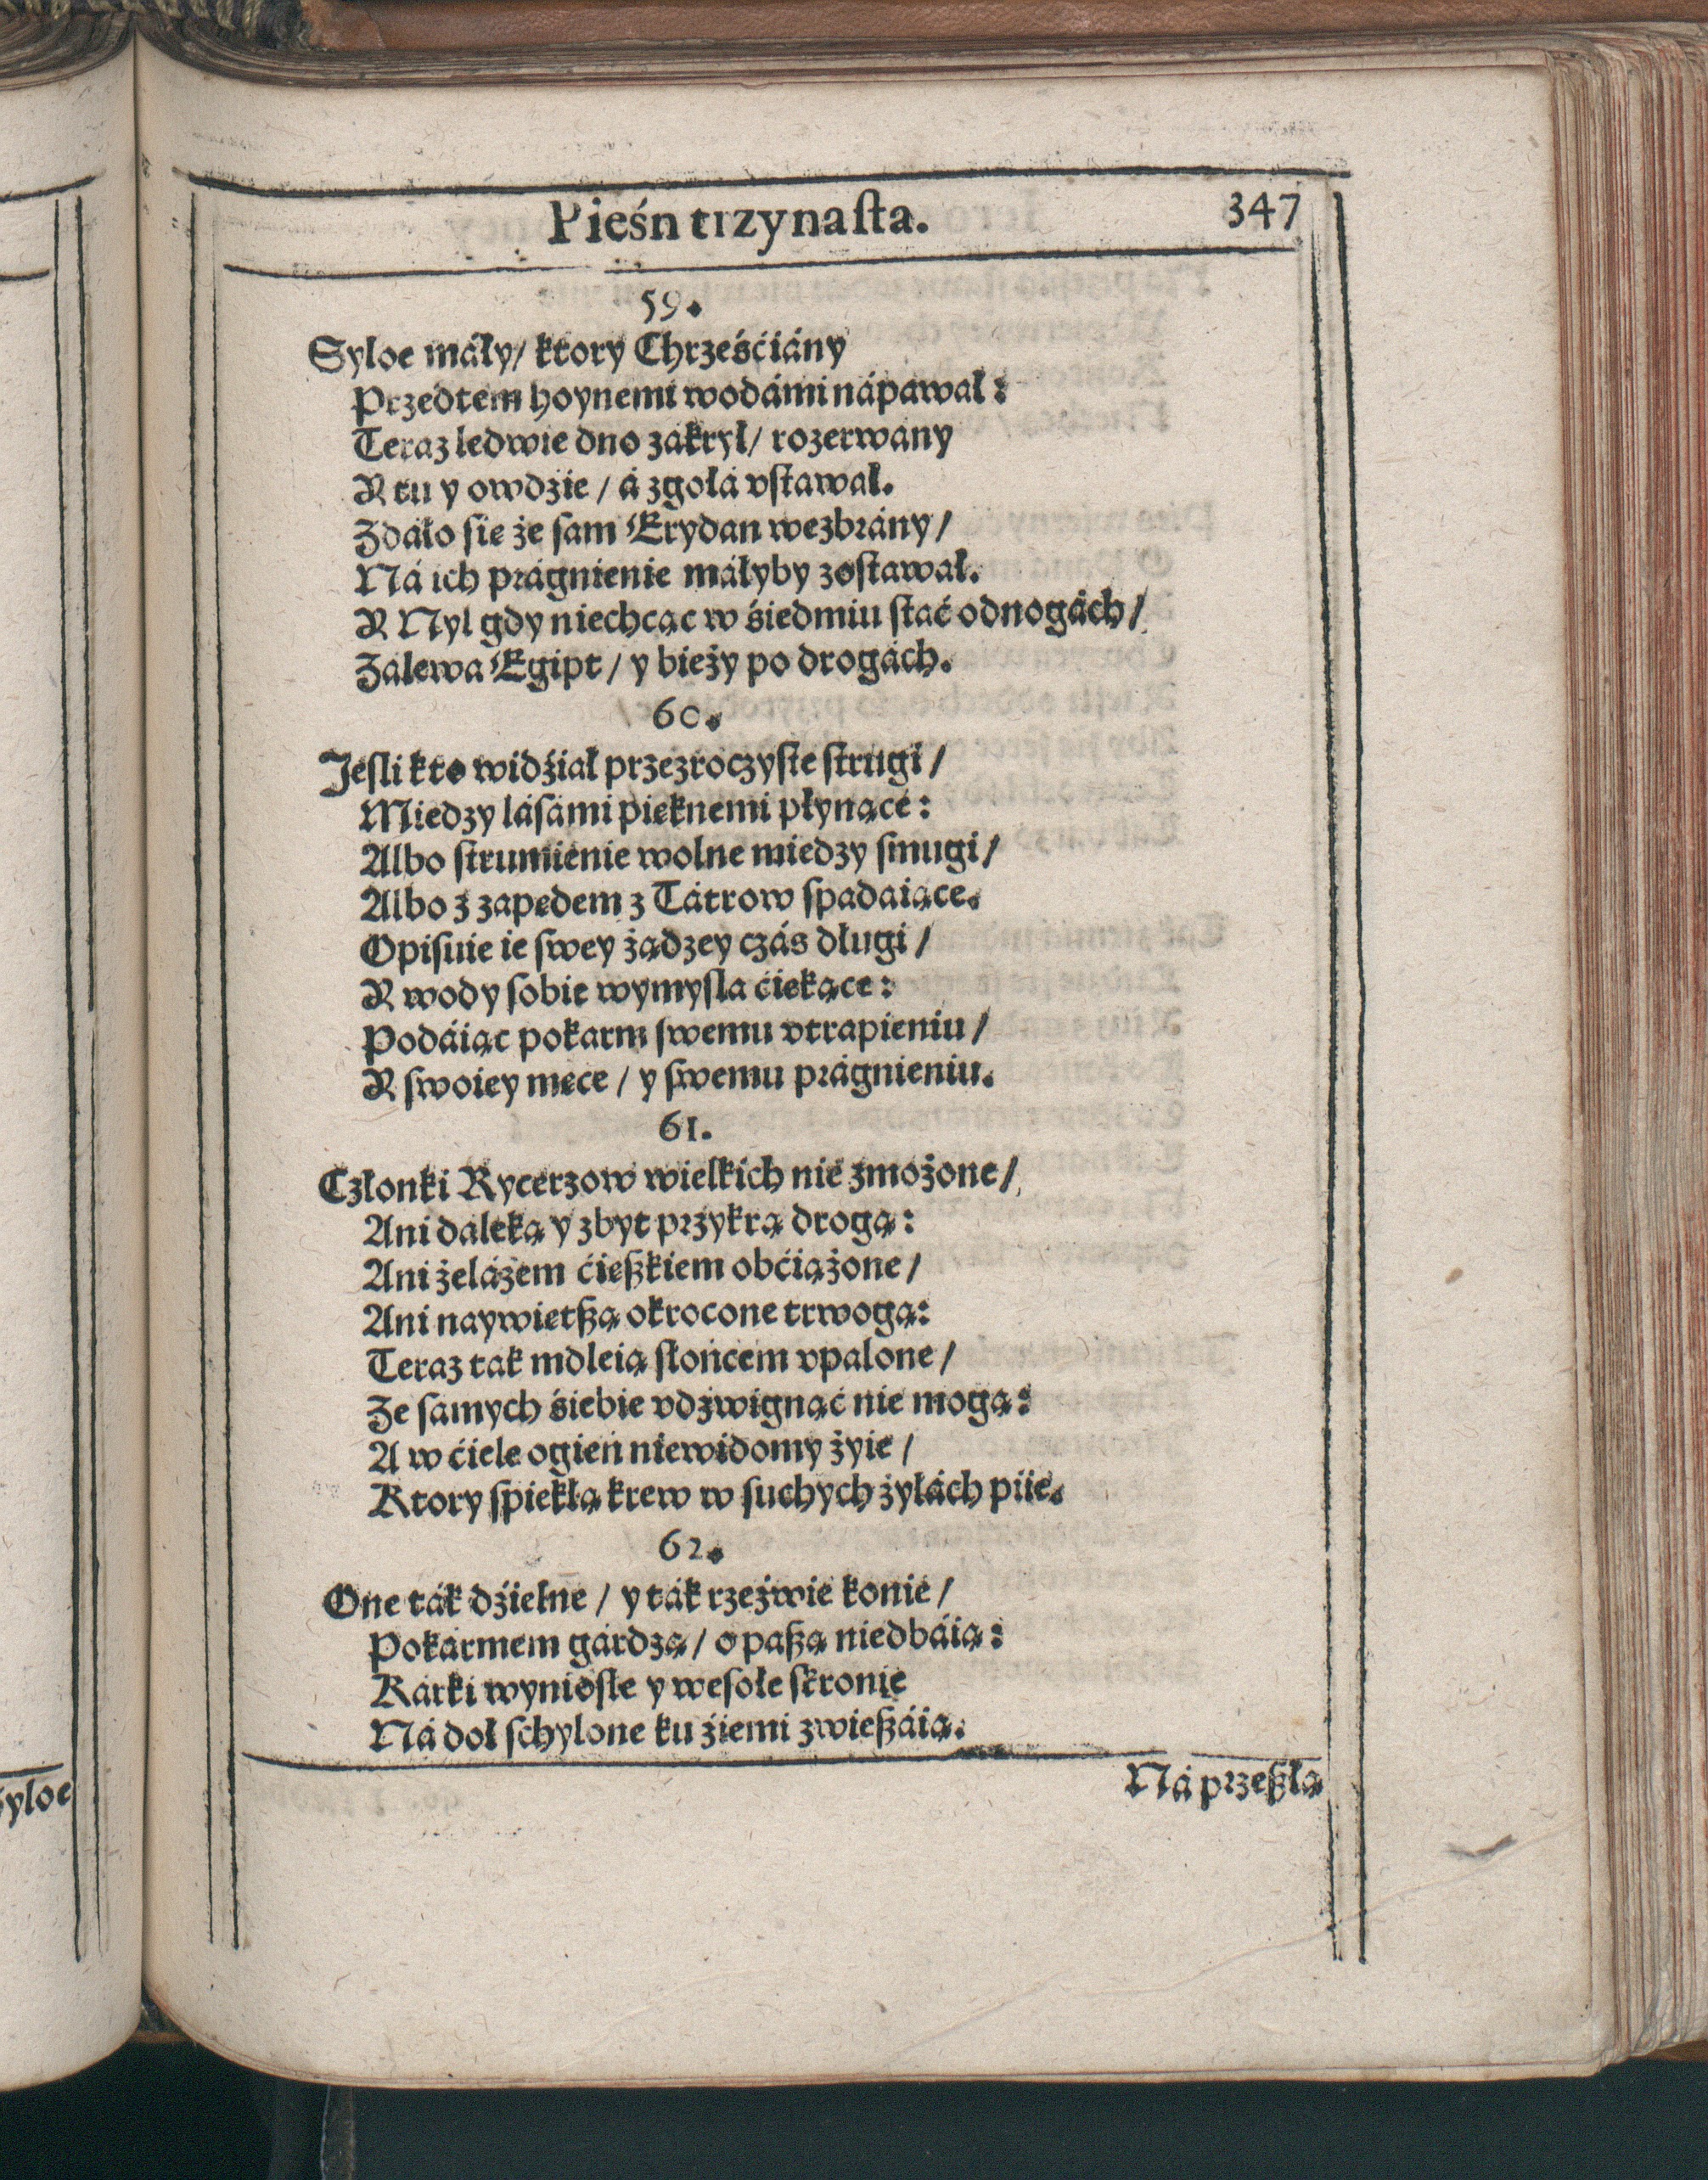 Pieśn trzynaſta. 347
59.
Syloe máły/ ktory Chrześćiány
Przedtem hoynemi wodámi nápawał:
Teraz ledwie dno zakrył/ rozerwány
Y tu y owdźie/ á zgołá vſtawał.
Zdáło ſie że ſam Erydan wezbrány/
Ná ich prágnienie máłyby zoſtawał.
Y Nyl gdy niechcąc w śiedmiu ſtać odnogách/
Zálewa Egipt/ y bieży po drogách.
60.
Jeſli kto widźiał przezroczyſte ſtrugi/
Miedzy láſámi pieknemi płynące:
Albo ſtrumienie wolne miedzy ſmugi/
Albo z zapędem z Tátrow ſpadaiące.
Opiſuie ie ſwey żądzey czás długi/
Y wody ſobie wymyſla ćiekące:
Podáiąc pokarm ſwemu vtrapieniu/
Y ſwoiey męce/ y ſwemu prágnieniu.
61.
Członki Rycerzow wielkich nie zmożone/
Ani daleką y zbyt przykrą drogą:
Ani żelázem ćieſzkiem obćiążone/
Ani naywietſzą okrocone trwogą:
Teraz tak mdleią słońcem vpalone/
Ze ſamych śiebie vdźwignąć nie mogą:
A w ćiele ogień niewidomy żyie/
Ktory ſpiekłą krew w ſuchych żyłách piie.
62.
One ták dźielne/ y ták rzeźwie konie/
Pokármem gárdzą/ o paſzą niedbáią:
Kárki wynioſłe y weſołe ſkronie
Ná doł ſchylone ku źiemi zwieſzáią.
Ná przeſzłą
Syloe